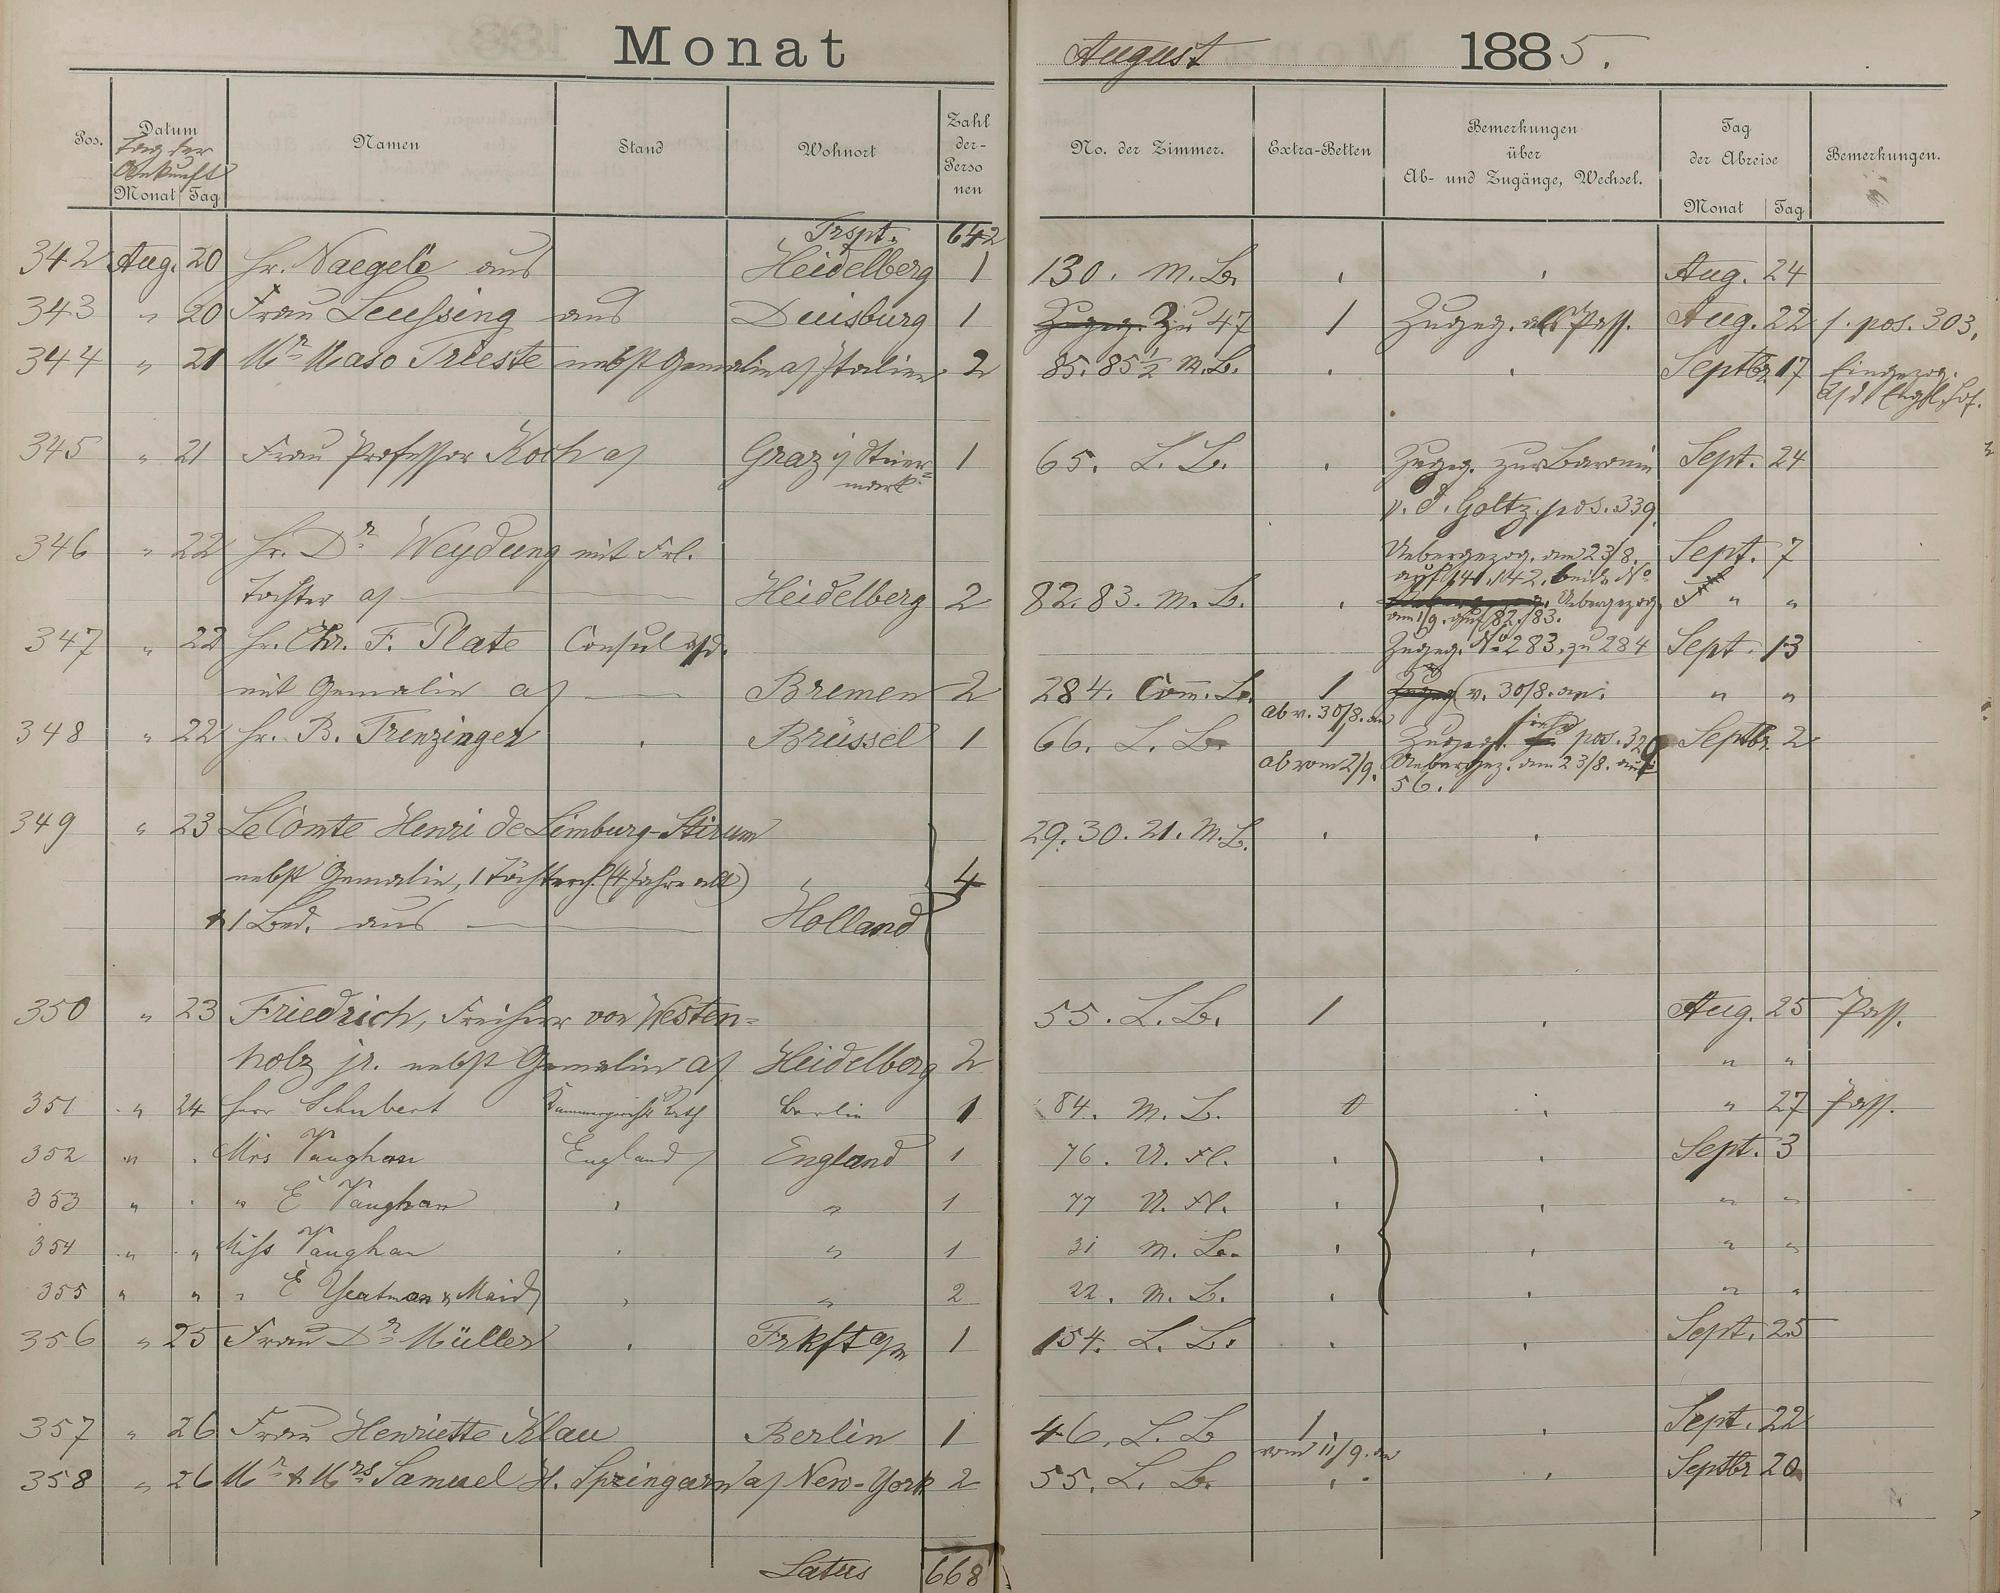 Monat August 1885.
Pos. Datum Namen Stand Wohnort Zahl der Personen No. der Zimmer. Extra-Betten Bemerkungen über Ab- und Zugänge, Wechsel. Tag der Abreise Bemerkungen.
Tag der Ankunft
Monat Tag Monat Tag
Trspt. 642
342 Aug. 20 Hr. Naegele aus Heidelberg 1 130. M. B. Aug. 24
343 " 20 Frau Leussing aus Duisburg 1 Zu 47 1 Zugeg. als Pass. Aug. 22 s. pos. 303.
344 " 21 Mr Maso Trieste nebst Gemalin a/ Italien. 2 85. 85 1/2 M. B. Septbr. 17 Eingezog.
a/d Engl. Hof.
345 " 21 Frau Professor Koch a/ Graz i/ Steier= 1 65. L. B. Zugeg. zur Baronin Sept. 24
mark. v. d. Goltz. pos. 339.
346 " 22 Hr. Dr Weydung mit Frl. Uebergezog. am 23/8. Sept. 7
auf 141. 142. beide No
Tochter a/ Heidelberg 2 82. 83. M. B. Uebergezog. " "
am 1/9. auf 82./83.
347 " 22 Hr. Chr. F. Plate Consul Zugeg. No 283. zu 284 Sept. 13
mit Gemalin a/ Bremen 2 284. Comm. B. 1 v. 30/8. an. " "
ab v. 30/8. an
348 " 22 Hr. B. Trenzinger Brüssel 1 66. L. B. 1 siehe pos. 329 Septbr. 2
ab vom 2/9. Uebergez. am 23/8. auf
56.
349 " 23 Le Comte Henri de Limburg-Stirum 29. 30. 21. M. B.
nebst Gemalin, 1 Töchterch. (4 Jahre alt) 4
& 1 Bed. aus Holland
350 " 23 Friedrich, Freiherr von Westen= 55. L. B. 1 Aug. 25 Pass.
holz jr. nebst Gemalin a/ Heidelberg 2 " "
351 " 24 Herr Schubert Kammergerichts Rath Berlin 1 84. M. B. " 27 Pass.
352 " Mrs Vaughan England England 1 76. U. Fl. Sept. 3
353 " " E Vaughan " 1 77 U. Fl. " "
354 " " Miss Vaughan " 1 31 M. B. " "
355 " " " E Yeatman & Maid " 2 22. M. B. " "
356 " 25 Frau Dr Müller Frkft a/M 1 154. L. B. Sept. 25
357 " 26 Frau Henriette Klau Berlin 1 46. L. B 1 Sept. 22
vom 11/9. an
358 " 26 Mr & Mrs Samuel H. Springarn a/ New-York 2 55. L. B. Septbr 20
Latus 668